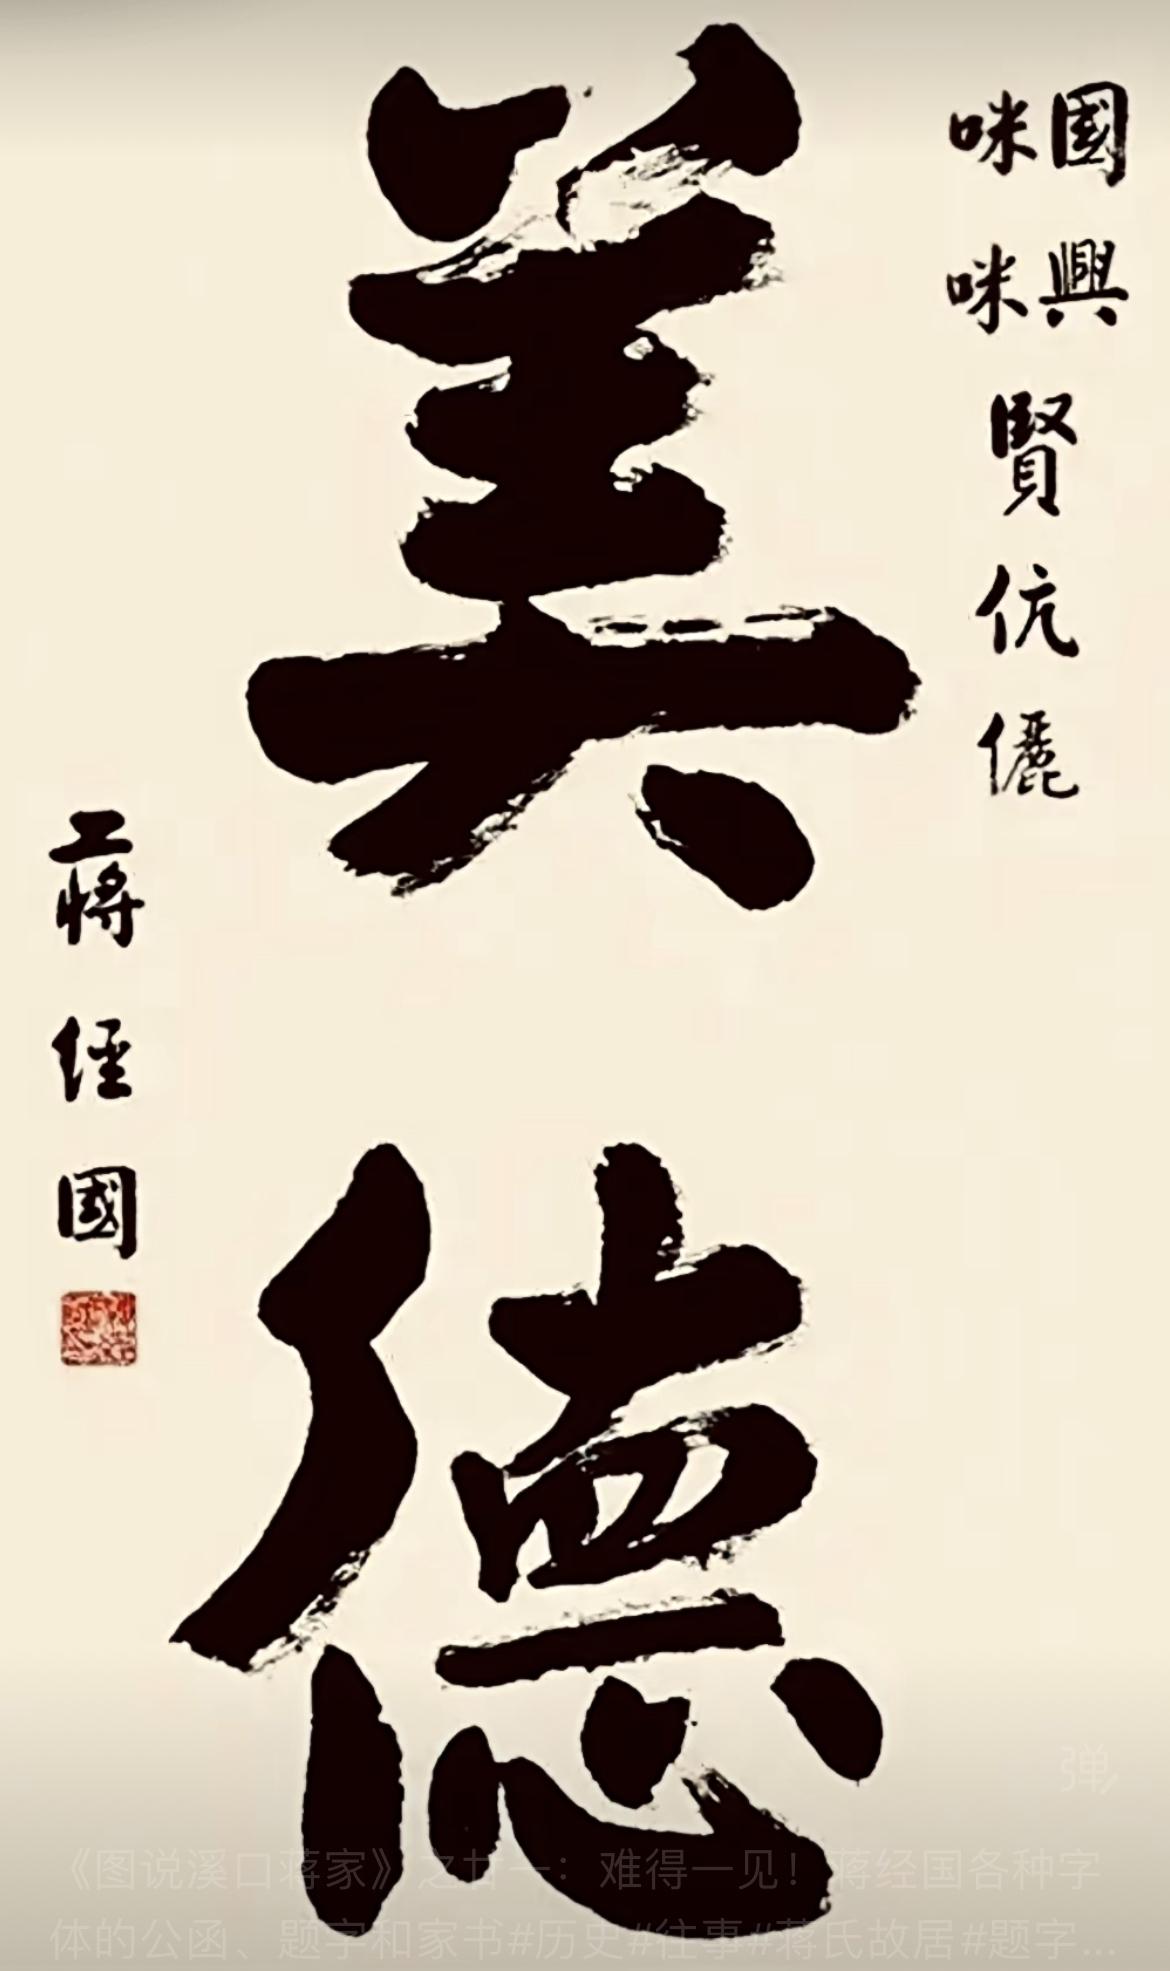 國興
咪咪
賢伉儷
美德
蔣經國
弹
《图说溪口蒋家》之廿一：难得一见！蒋经国各种字
体的公函、题字和家书#历史#往事#蒋氏故居#题字...